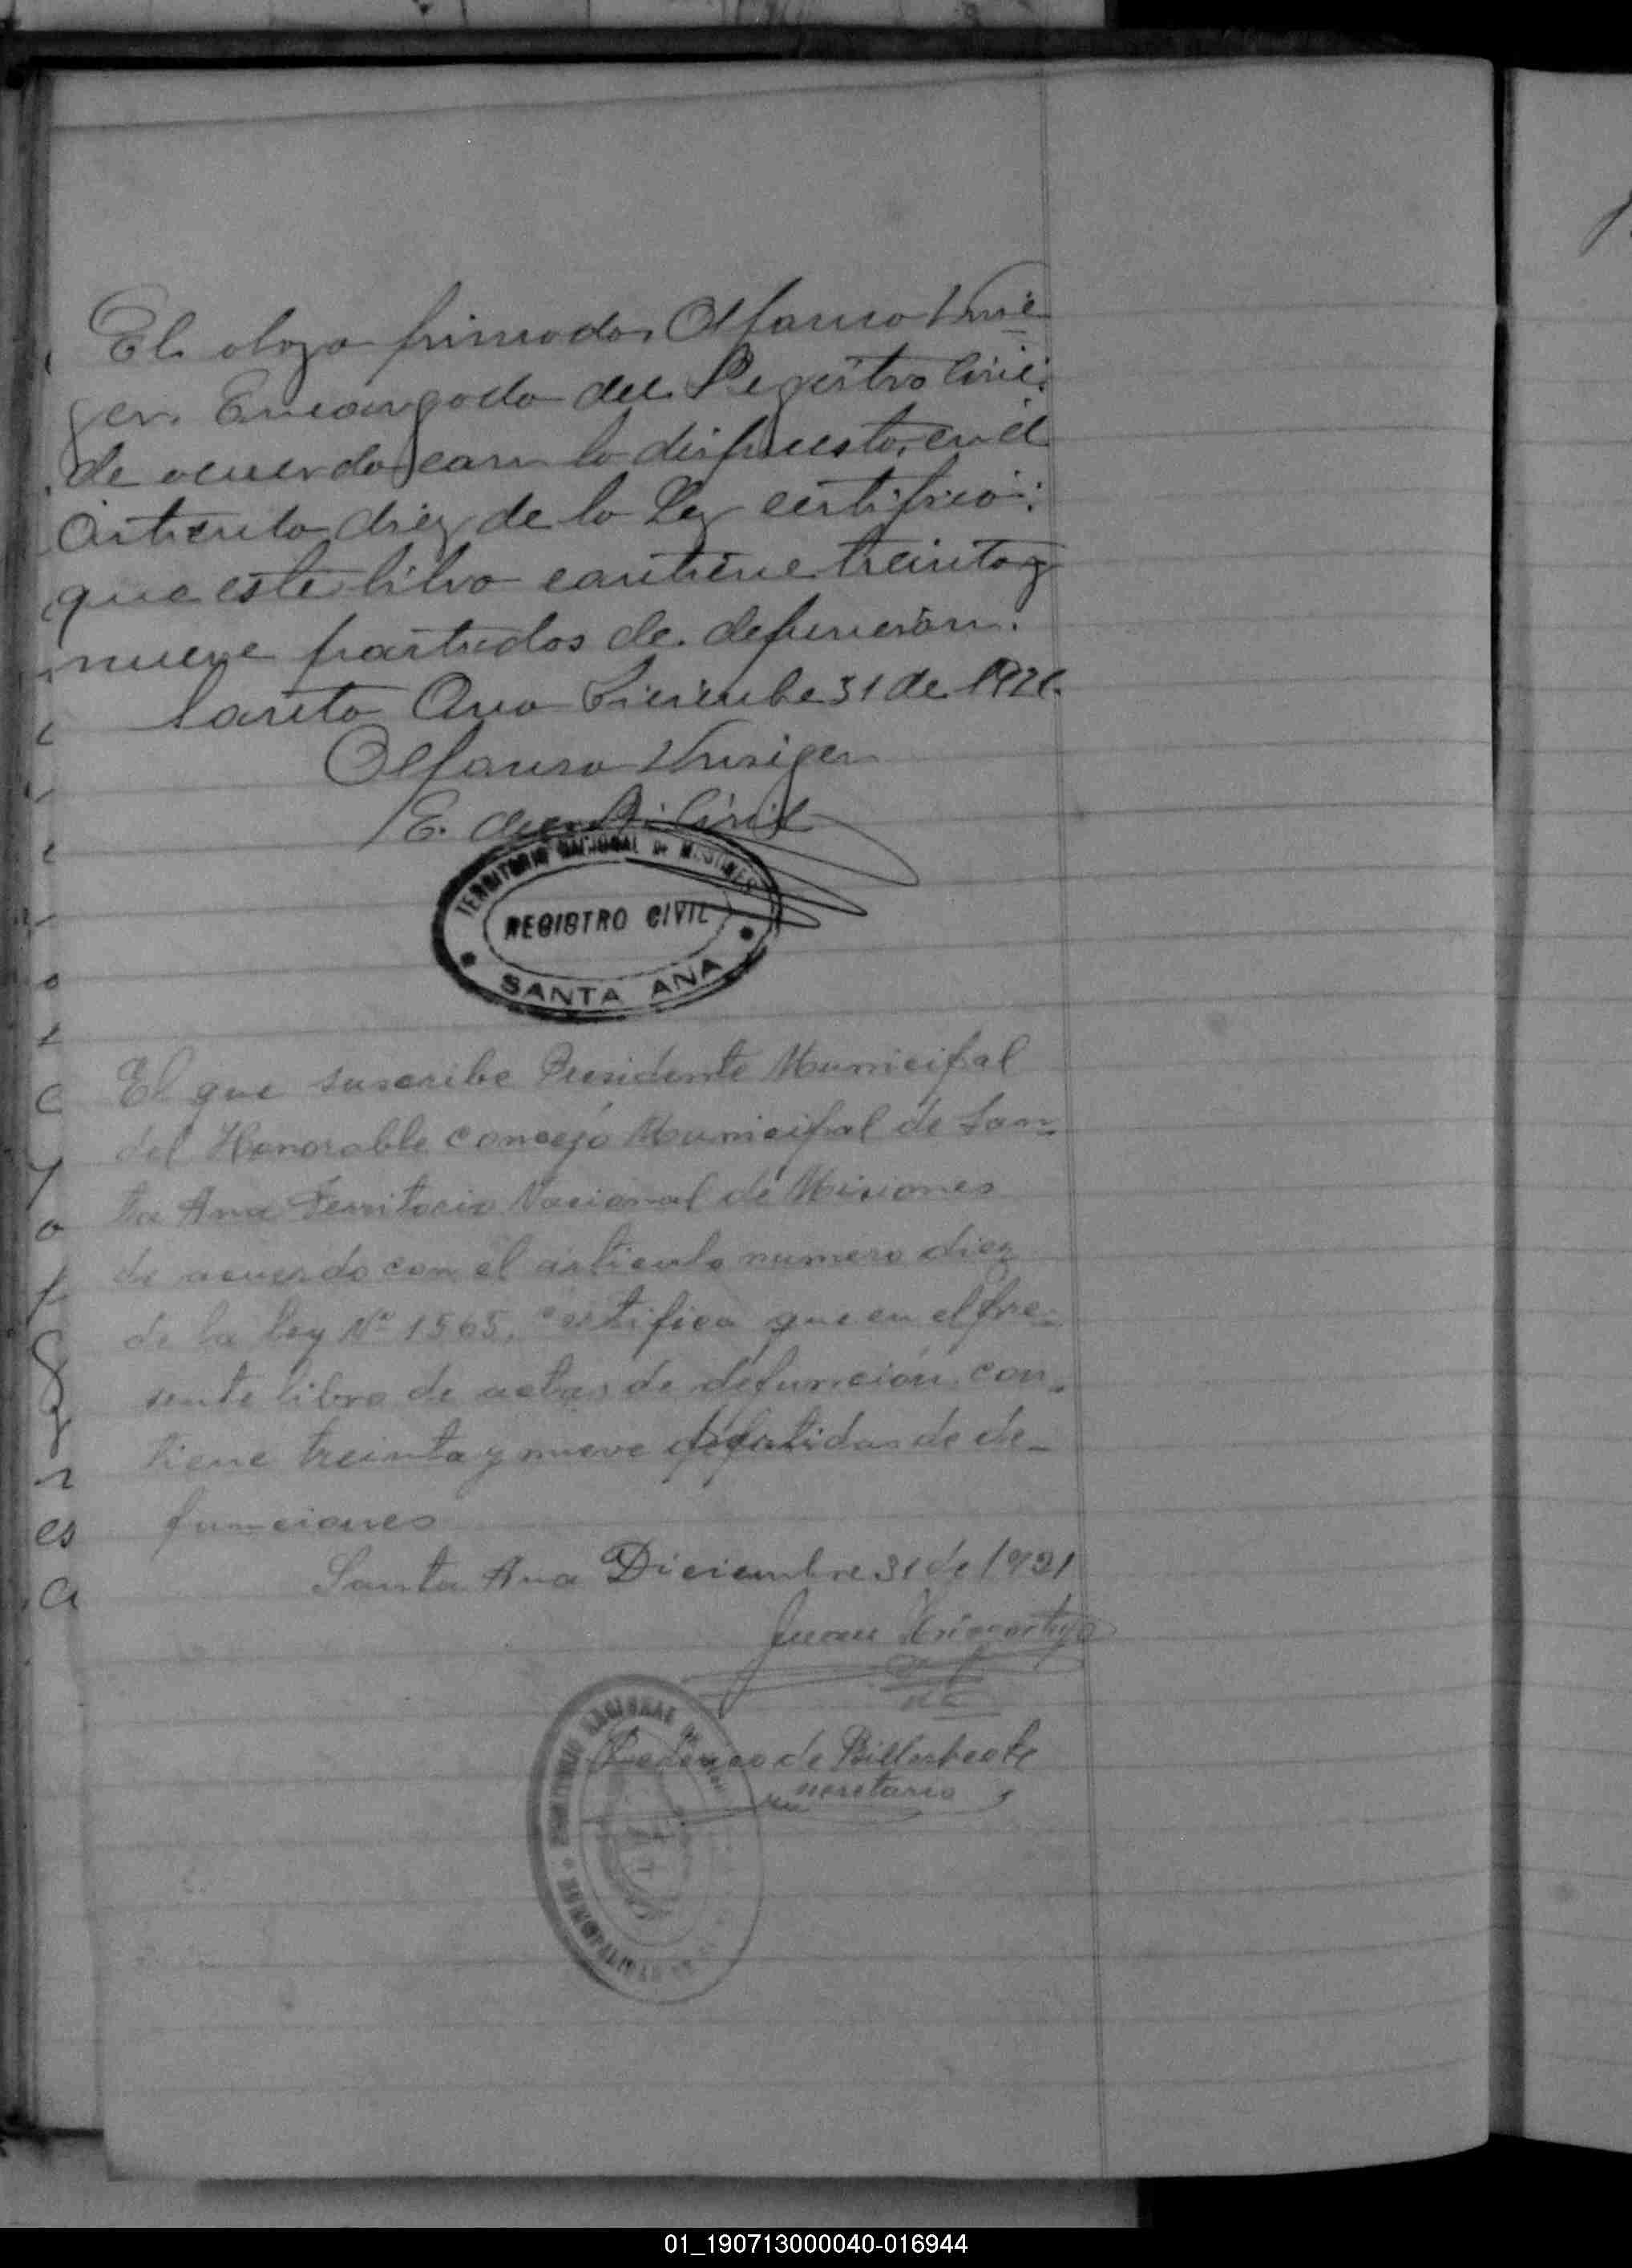 El abajo firmado, Alfonso
ger. Encargado del Registro Civil
de acuerdo con lo dispuesto, en el
Articulo diez de la Ley certifico:
que este libro contiene treinta y
nueve partidas de defunción.
Santa Ana Diciembre 31 de 1921.
Alfonso
E. del R. Civil
TERRITORIO NACIONAL DE MISIONES
REGISTRO CIVIL
SANTA ANA
El que suscribe Presidente Municipal
del Honorable Concejo Municipal de San-
ta Ana Territorio Nacional de Misiones
de acuerdo con el articulo numero diez
de la ley Nº 1565, certifica que en el pre-
sente libro de actas de defunción con-
tiene treinta y nueve partidas de de-
funciones
Santa Ana Diciembre 31 de 1921
Juan
TERRITORIO NACIONAL DE
Federico de
secretario
01_190713000040-016944